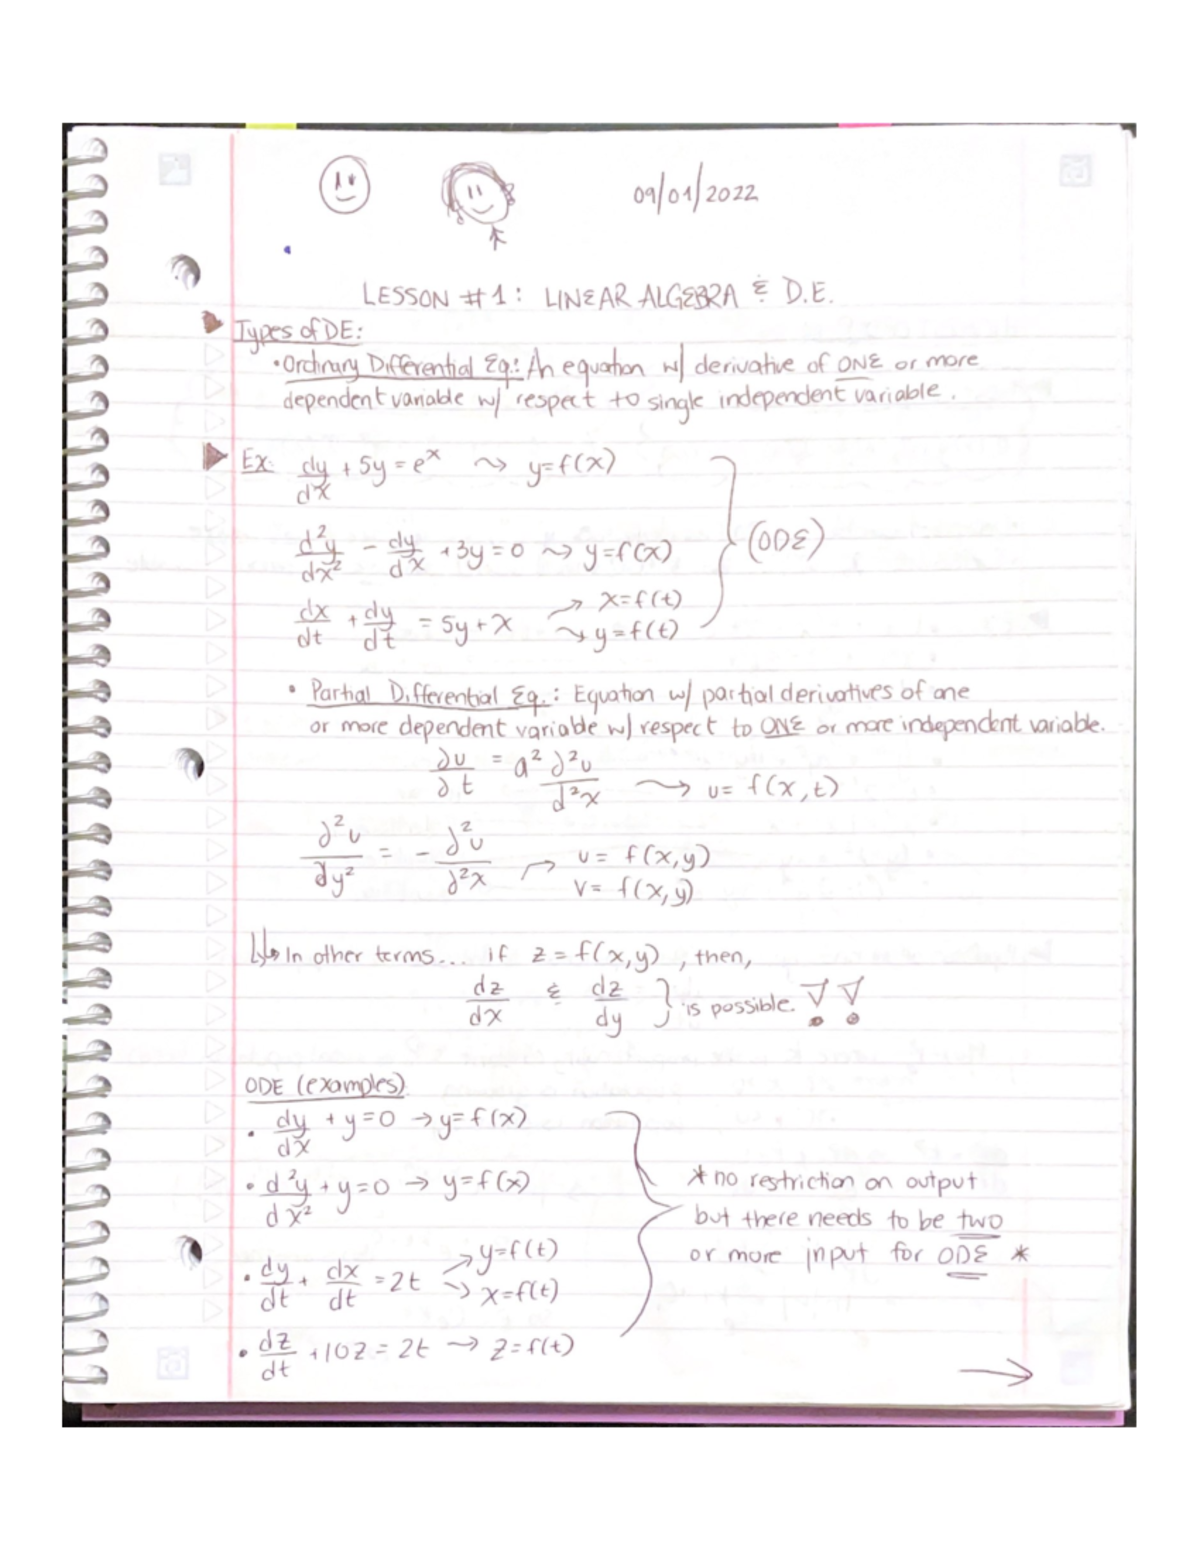 09/01/2022
LESSON #1: LINEAR ALGEBRA & D.E.
Types of DE:
• Ordinary Differential Eq.: An equation w/ derivative of ONE or more
dependent variable w/ respect to single independent variable.
Ex: dy/dx + 5y = e^x ⤳ y=f(x)
d²y/dx² - dy/dx + 3y = 0 ⤳ y=f(x)
(ODE)
dx/dt + dy/dt = 5y + x → x=f(t)
⤳ y=f(t)
• Partial Differential Eq.: Equation w/ partial derivatives of one
or more dependent variable w/ respect to ONE or more independent variable.
∂u/∂t = a² ∂²u/∂²x ⟶ u= f(x,t)
∂²u/∂y² = - ∂²u/∂²x → u= f(x,y)
v= f(x,y)
↳ In other terms... if z = f(x,y), then,
dz/dx & dz/dy } is possible. !!
ODE (examples).
• dy/dx + y=0 → y=f(x)
• d²y/dx² + y=0 → y=f(x)
* no restriction on output
but there needs to be two
or more input for ODE *
• dy/dt + dx/dt = 2t → y=f(t)
→ x=f(t)
• dz/dt + 10z = 2t → z=f(t)
→